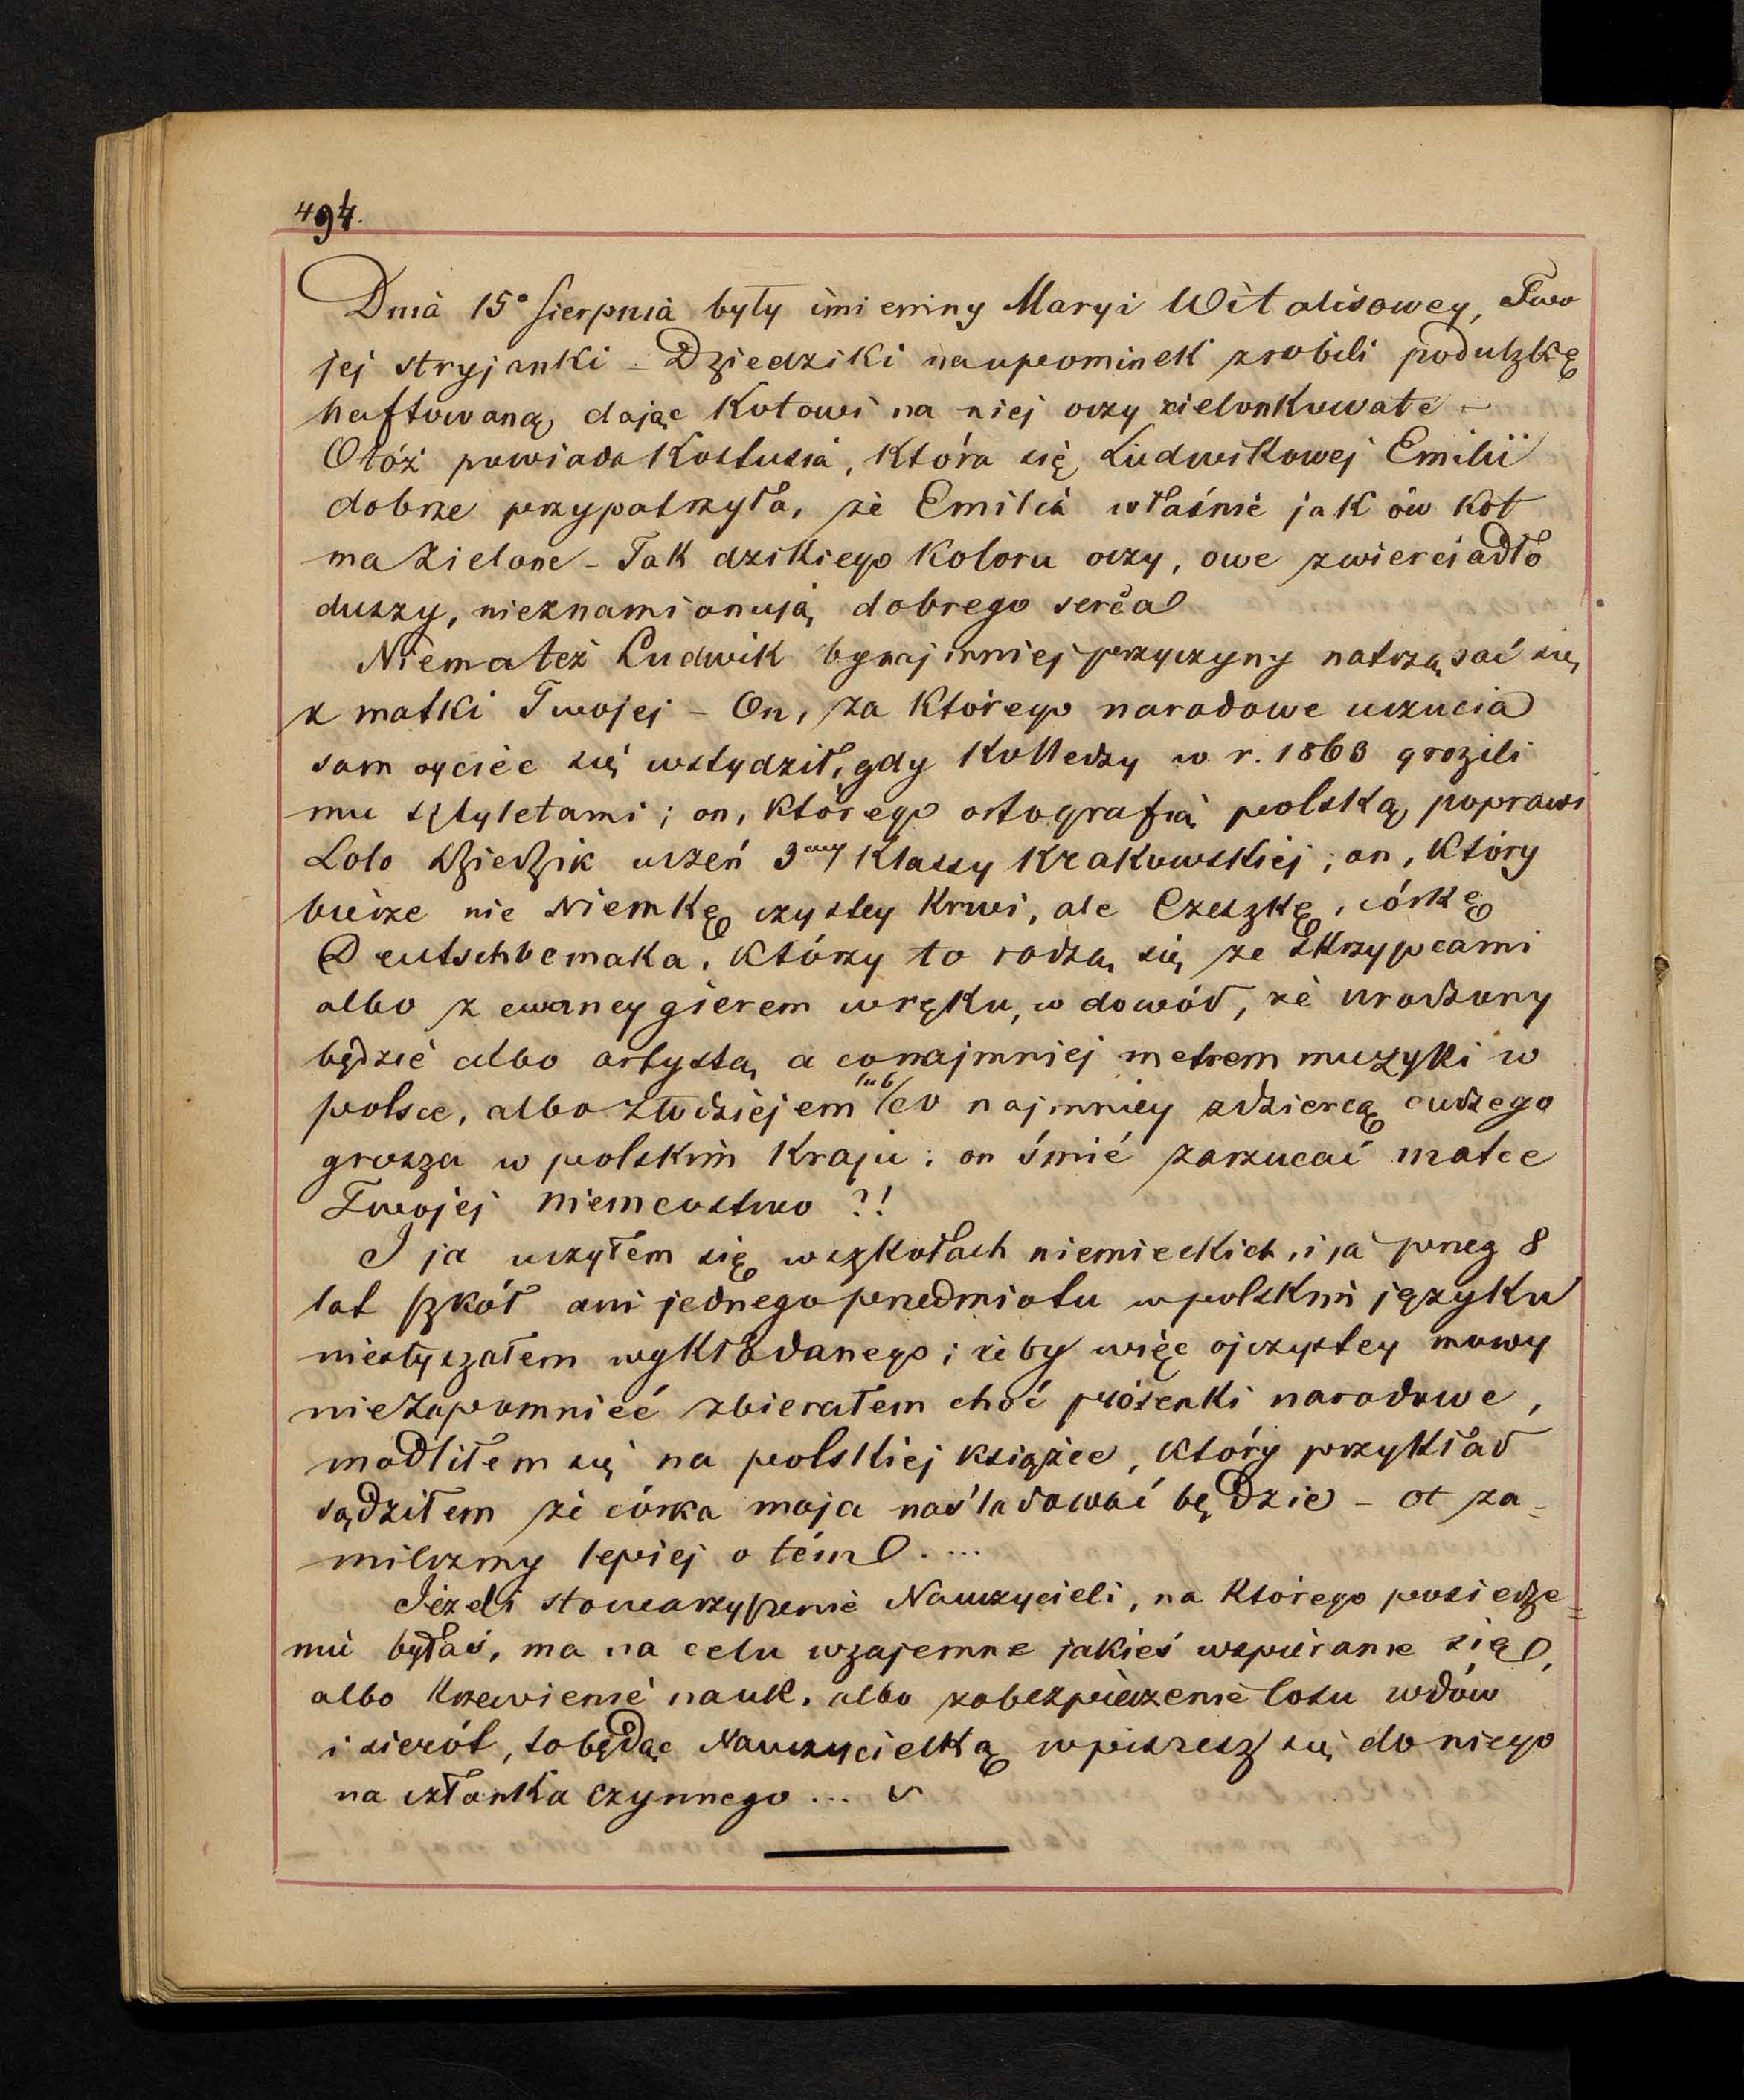 494.
Dnia 15º Sierpnia były imieniny Maryi Witalisowey, Two
jej stryjanki – Dziedziki na upominek zrobili poduszkę
haftowaną dając kotowi na niej oczy zielonkowate –
Otóż powiada Kostusia, która się Ludwikowej Emilii
dobrze przypatrzyła, że Emilia właśnie jak ów kot
ma zielone – Tak dzikiego koloru oczy, owe zwierciadło
duszy, nieznamionują dobrego serca
Niema też Ludwik bynajmniej przyczyny natrząsać się
z matki Twojej – On, za którego narodowe uczucia
sam ojciec się wstydził, gdy kolledzy w r. 1863 grozili
mu sztyletami; on, którego ortografią polską poprawi
Lolo Dziedzik uczeń 3ciey klassy krakowskiej; on, który
bierze nie Niemkę czystey krwi, ale Czeszkę, córkę
Deutschbemaka, którzy to rodzą się ze skrzypcami
albo z ewaneygierem w ręku, w dowód, że urodzony
będzie albo artystą a conajmniej metrem muzyki w
polsce, albo złodziejem lub co najmniey zdziercą cudzego
grosza w polskim kraju: on śmié zarzucać matce
Twojej niemcostwo ?!
I ja uczyłem się w szkołach niemieckich, i ja przez 8
lat szkół ani jednego przedmiotu w polskim języku
niesłyszałem wykładanego; żeby więc ojczystey mowy
niezapomnieć zbierałem choć piósenki narodowe,
modliłem się na polskiej książce, który przykład
sądziłem że córka moja naśladować będzie – ot za=
milczmy lepiej o tém ....
Jeżeli stowarzyszenie Nauczycieli, na którego posiedze=
niu byłaś, ma na celu wzajemne jakieś wspieranie się,
albo krzewienie nauk, albo zabezpieczenie losu wdów
i sierót, to będąc Nauczycielką wpiszesz się do niego
na członka czynnego ...